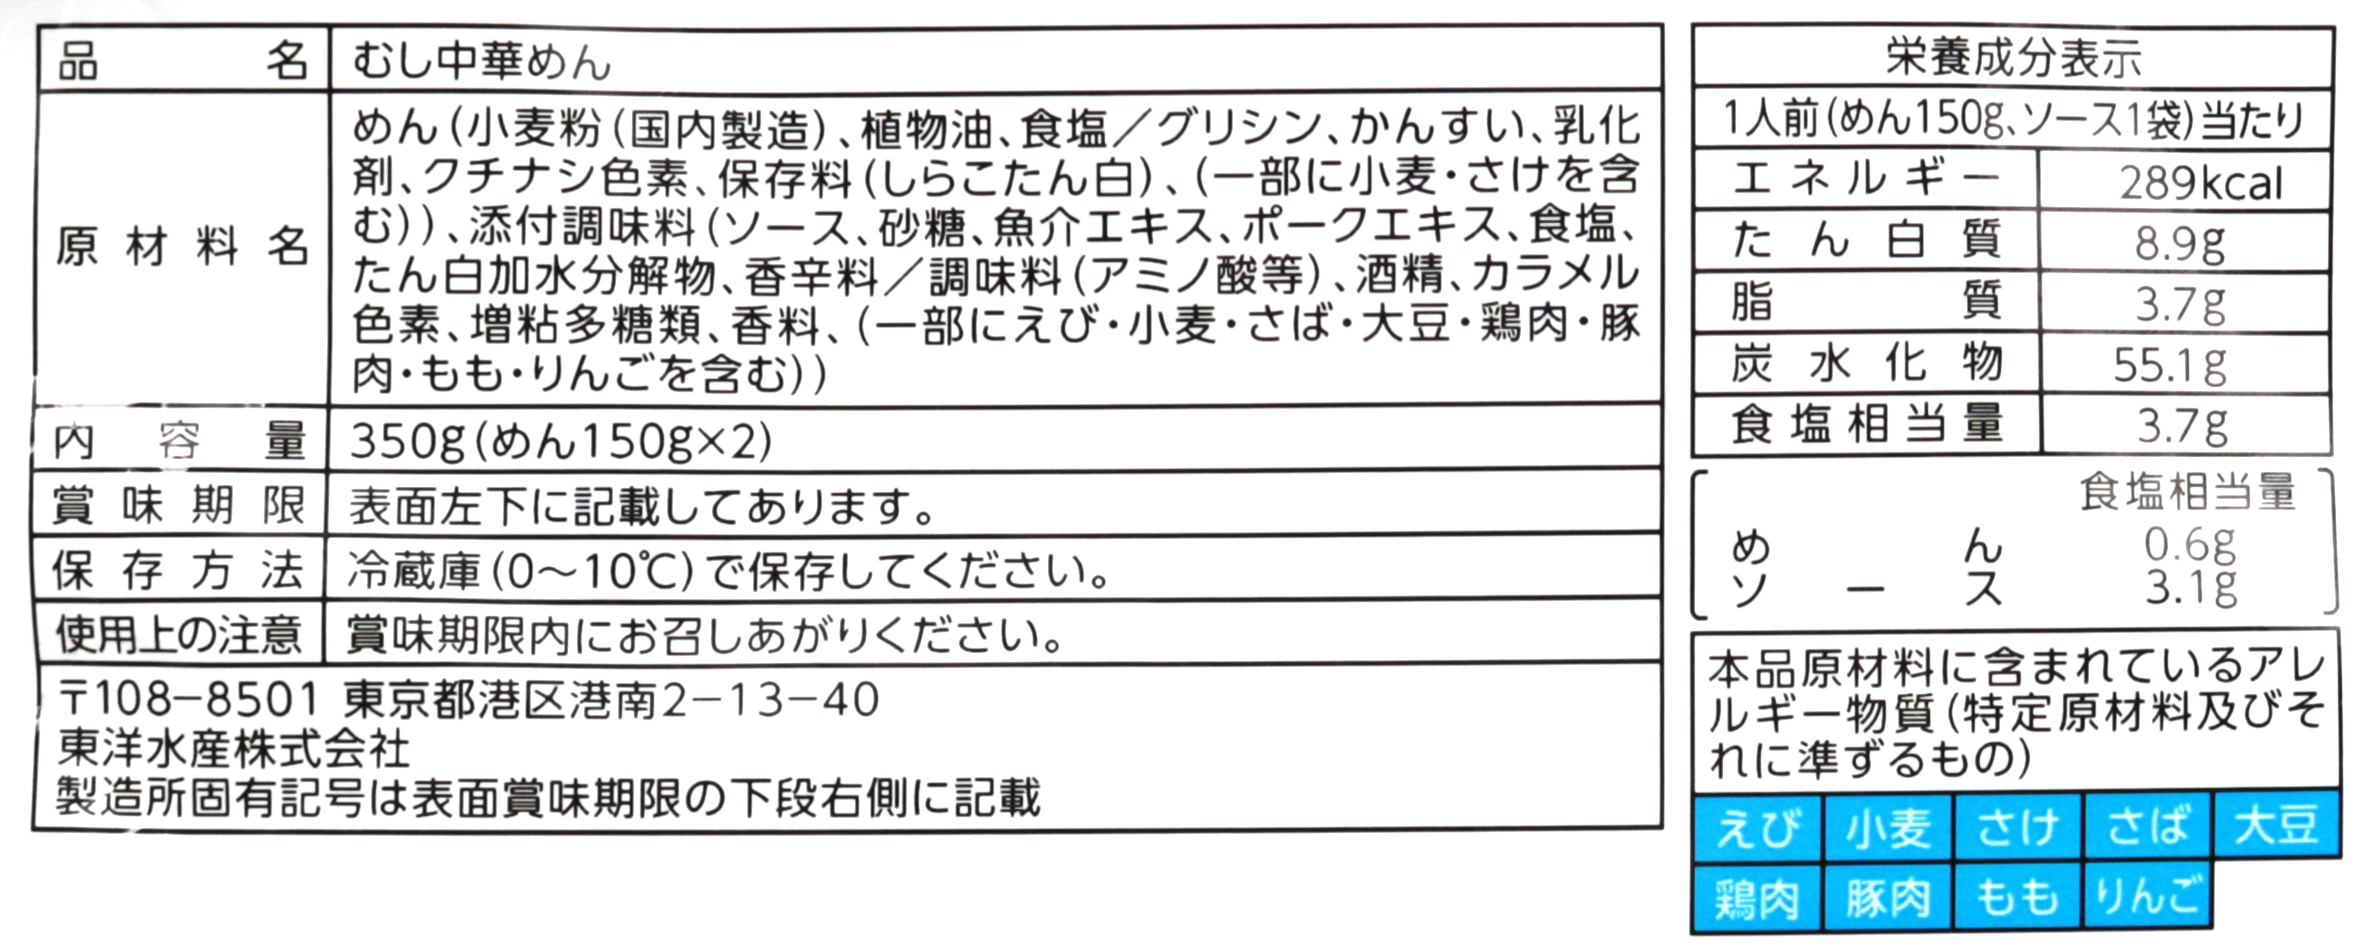 品名 むし中華めん
原材料名
めん(小麦粉(国内製造)、植物油、食塩／グリシン、かんすい、乳化
剤、クチナシ色素、保存料(しらこたん白)、(一部に小麦・さけを含
む))、添付調味料(ソース、砂糖、魚介エキス、ポークエキス、食塩、
たん白加水分解物、香辛料／調味料(アミノ酸等)、酒精、カラメル
色素、増粘多糖類、香料、(一部にえび・小麦・さば・大豆・鶏肉・豚
肉・もも・りんごを含む))
内容量 350g(めん150g×2)
賞味期限 表面左下に記載してあります。
保存方法 冷蔵庫(0～10℃)で保存してください。
使用上の注意 賞味期限内にお召しあがりください。
〒108−8501 東京都港区港南2−13−40
東洋水産株式会社
製造所固有記号は表面賞味期限の下段右側に記載
栄養成分表示
1人前(めん150g、ソース1袋)当たり
エネルギー 289kcal
たん白質 8.9g
脂質 3.7g
炭水化物 55.1g
食塩相当量 3.7g
食塩相当量
めん 0.6g
ソース 3.1g
本品原材料に含まれているアレ
ルギー物質(特定原材料及びそ
れに準ずるもの)
えび 小麦 さけ さば 大豆
鶏肉 豚肉 もも りんご